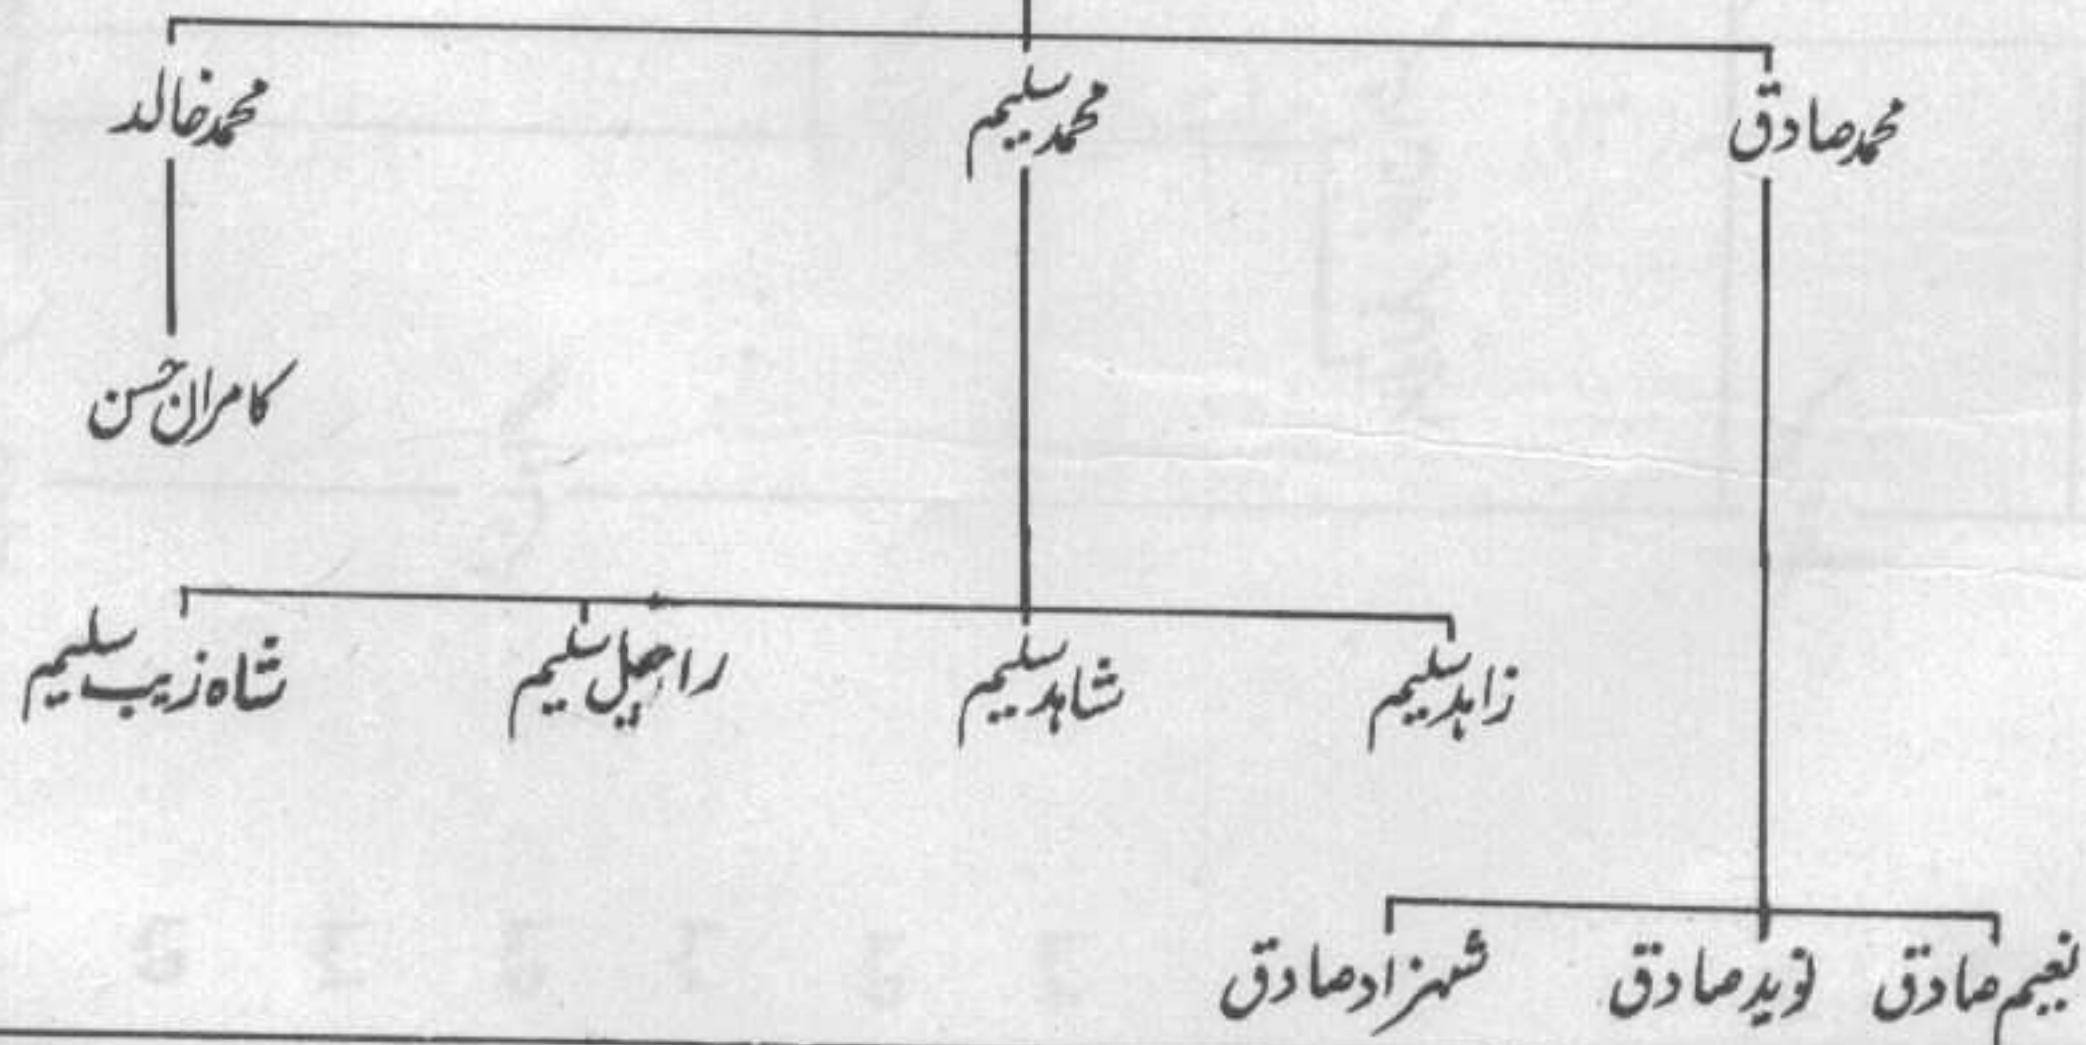 محمد صادق
محمد سلیم
محمد خالد
کامران حسن
زاہد سلیم
شاہد سلیم
راحیل سلیم
شاہ زیب سلیم
نعیم صادق
نوید صادق
شہزاد صادق